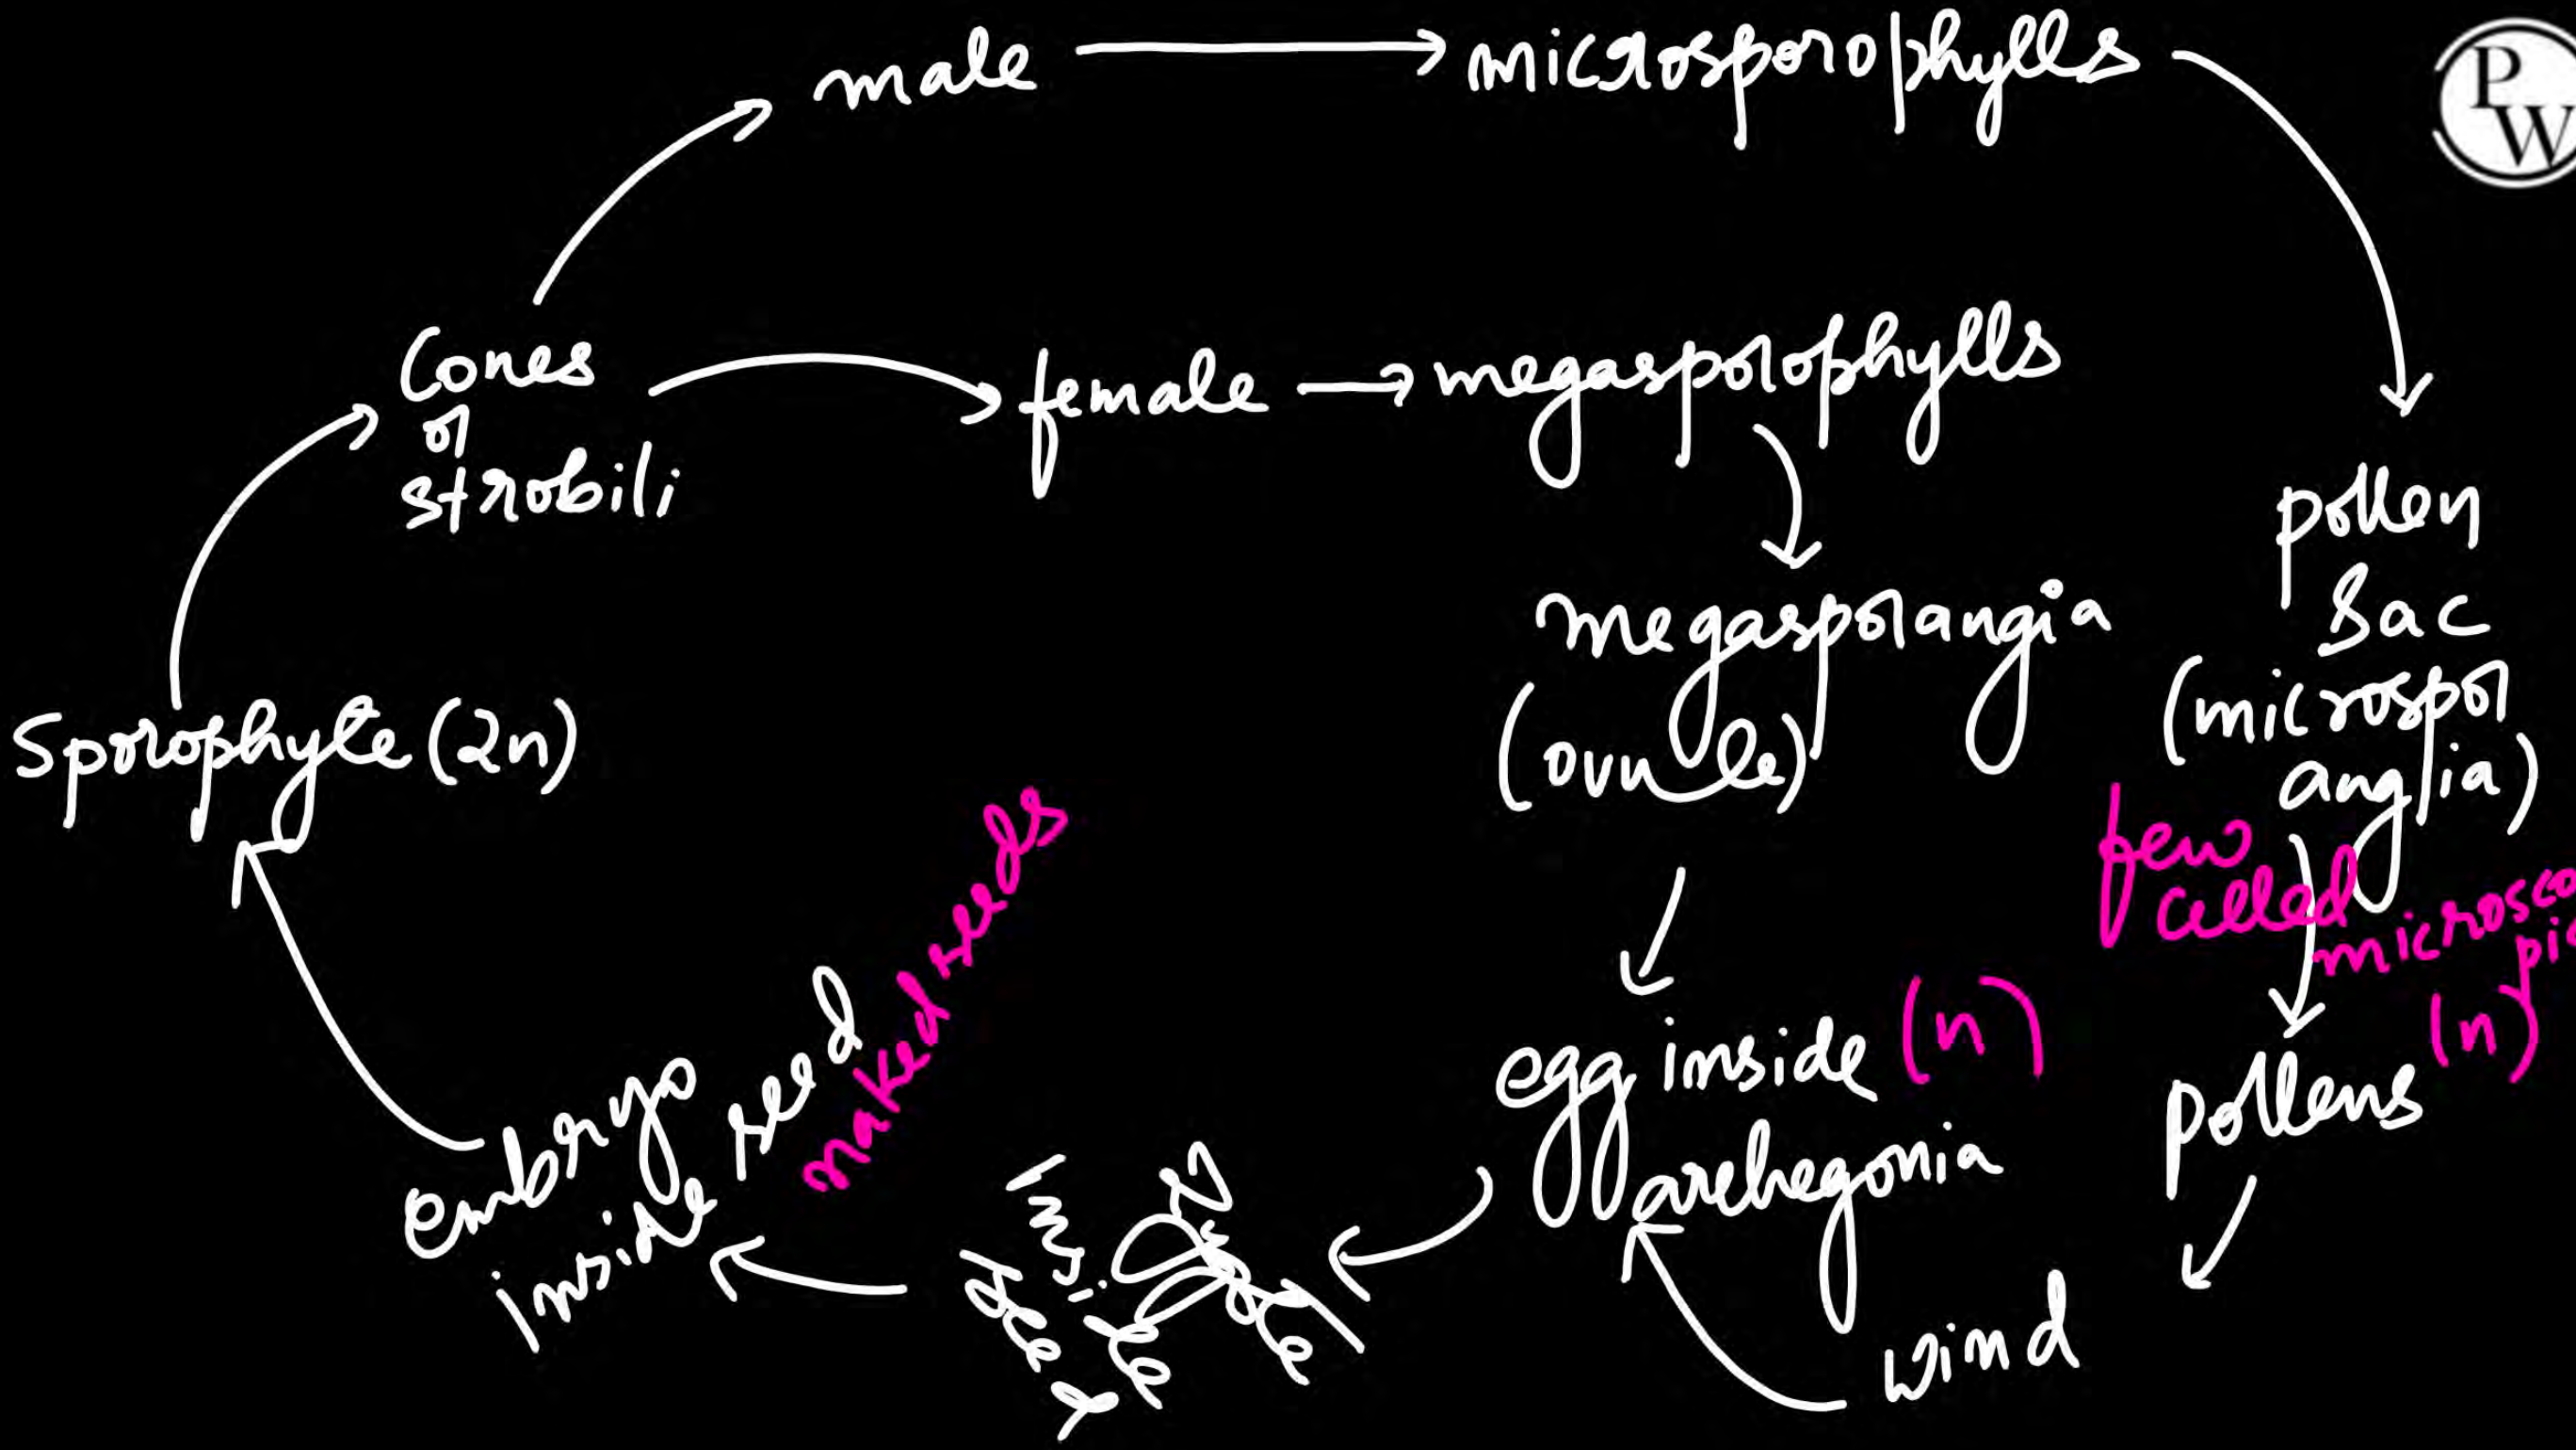 male
microsporophylls
PW
Cones
or
strobili
female
megasporophylls
pollen
sac
(microspor
angia)
megasporangia
(ovule)
Sporophyte (2n)
few
celled
microsco
pic
(n)
pollens
egg inside (n)
archegonia
wind
Zygote
inside
seed
embryo
inside seed
naked seeds